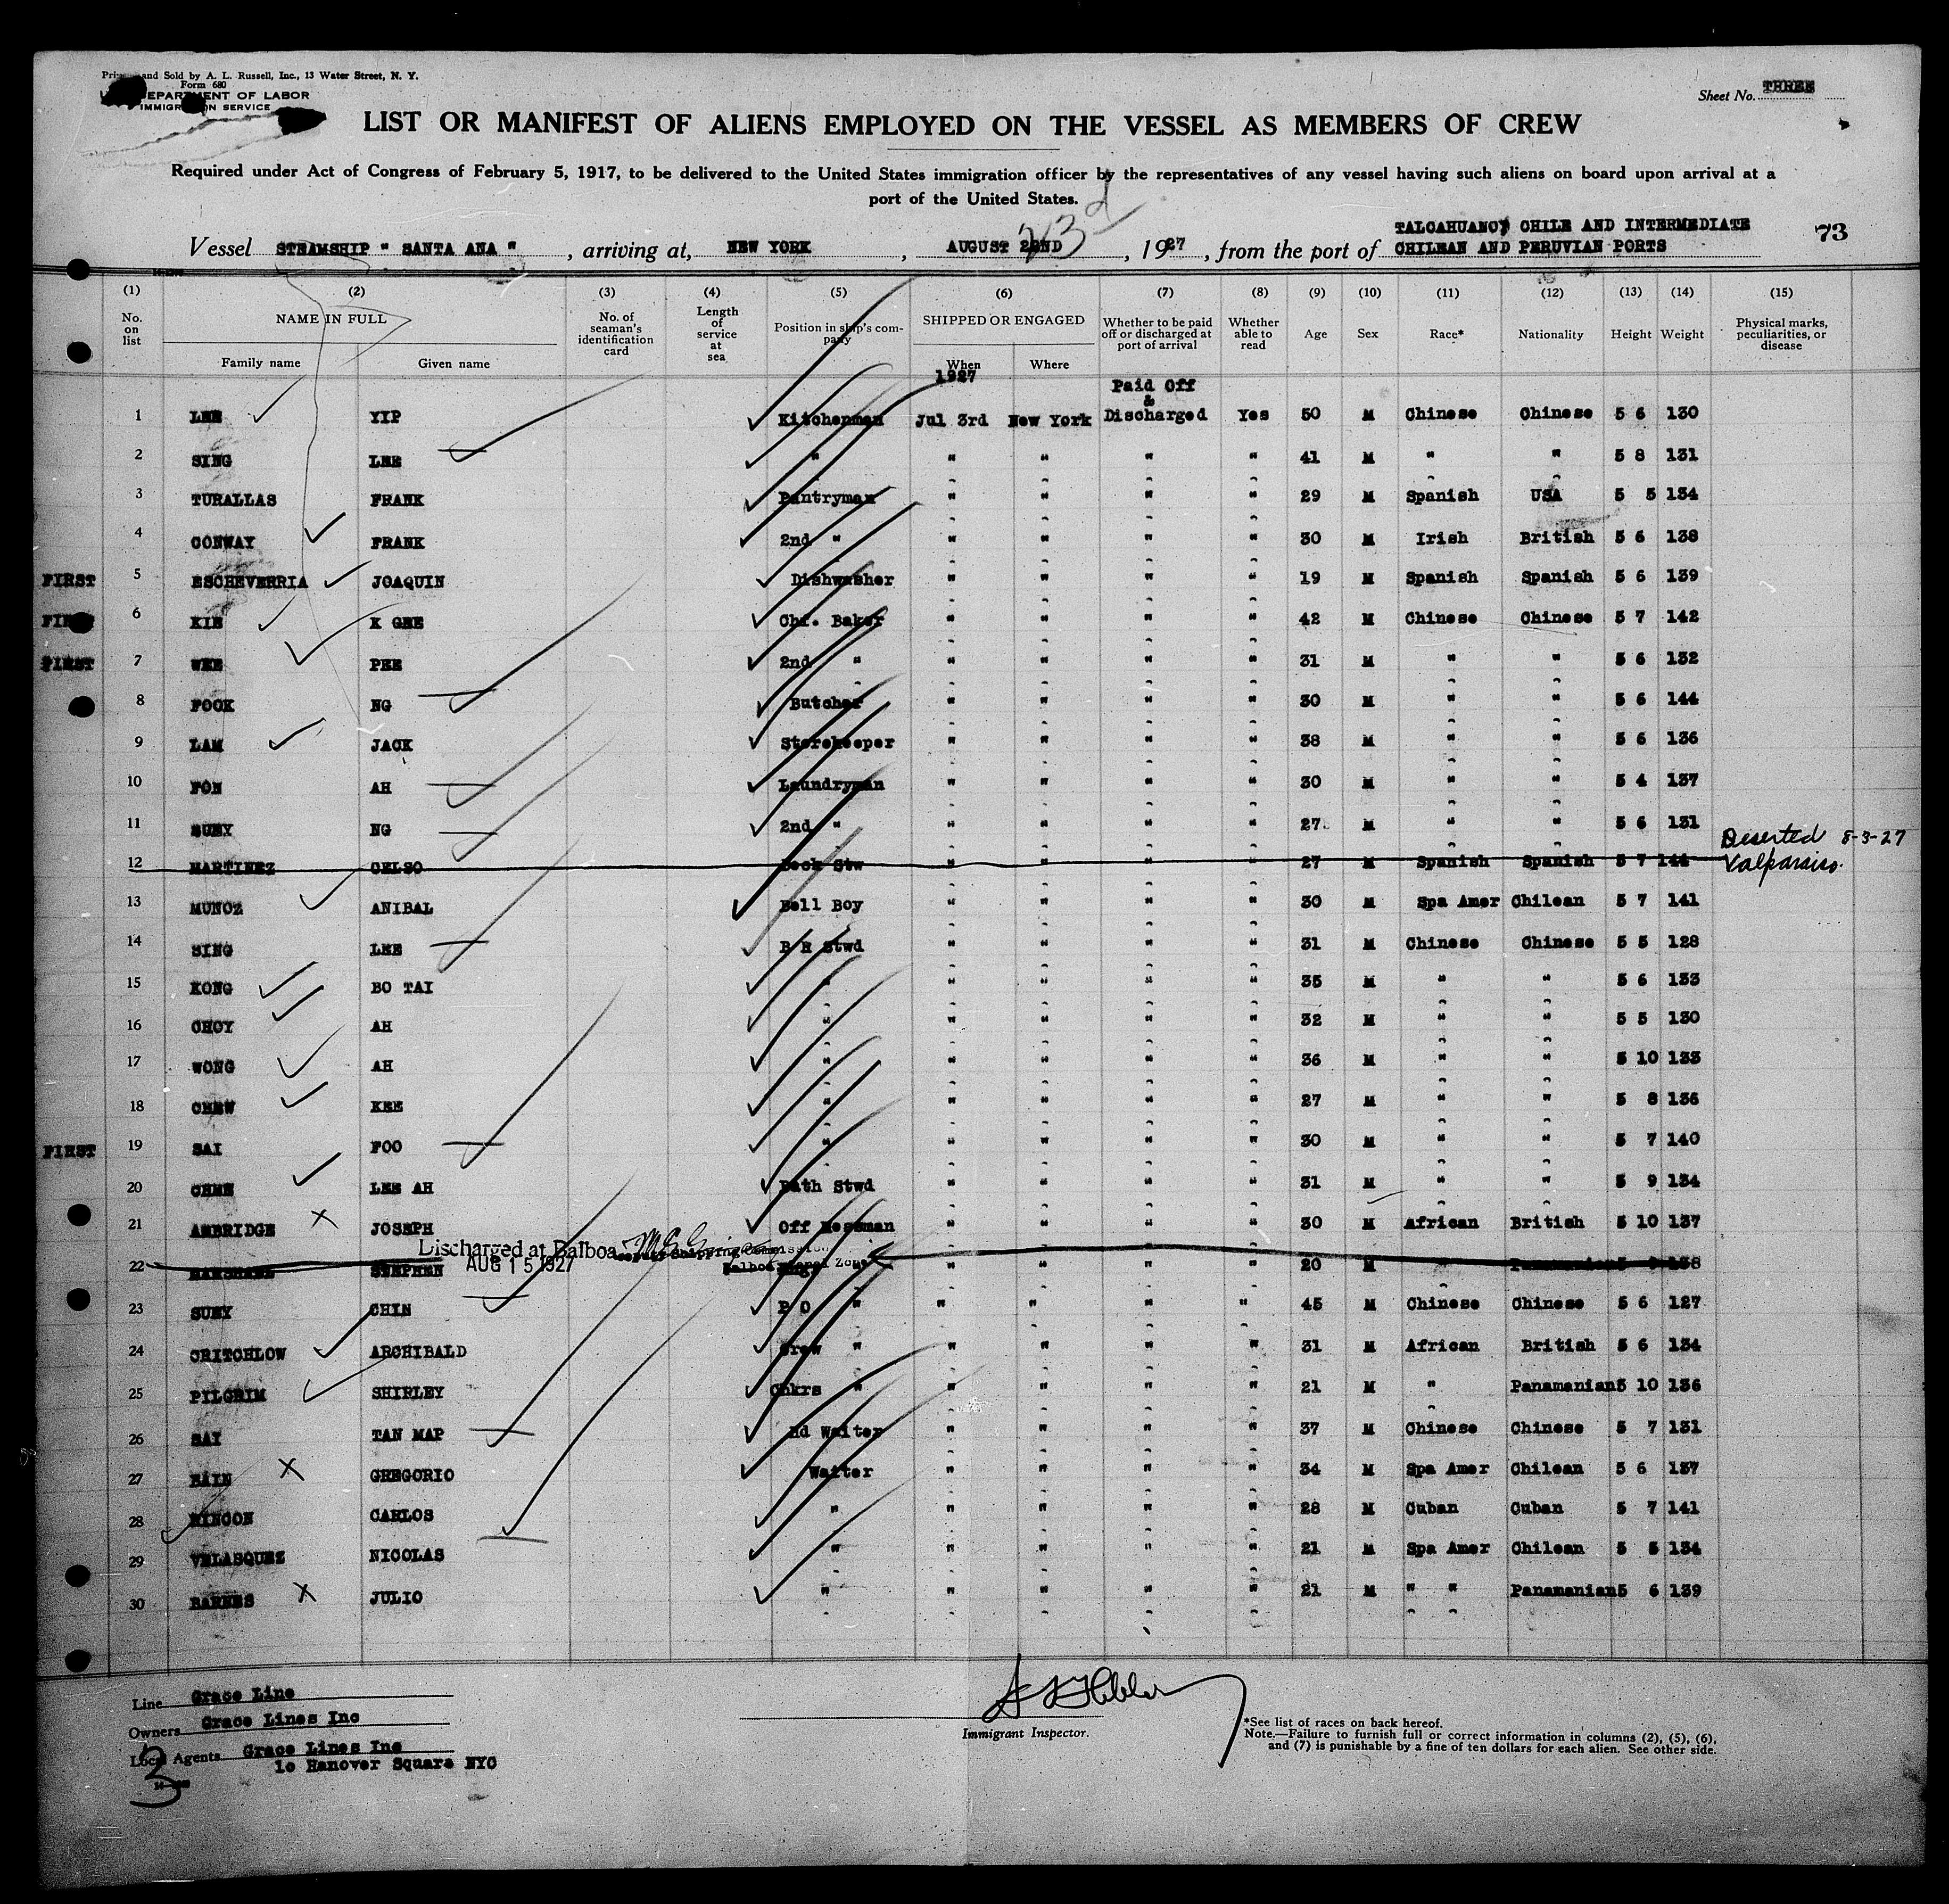 and Sold by A. L. Russell, Inc., 13 Water Street, N. Y.
Form 680
DEPARTMENT OF LABOR
IMMIGRATION SERVICE
Sheet No. THREE
LIST OR MANIFEST OF ALIENS EMPLOYED ON THE VESSEL AS MEMBERS OF CREW
Required under Act of Congress of February 5, 1917, to be delivered to the United States immigration officer by the representatives of any vessel having such aliens on board upon arrival at a
port of the United States.
23d
TALCAHUANO, CHILE AND INTERMEDIATE
Vessel STEAMSHIP " SANTA ANA ", arriving at, NEW YORK, AUGUST 22ND, 1927, from the port of CHILEAN AND PERUVIAN PORTS 73
(1) (2) (3) (4) (5) (6) (7) (8) (9) (10) (11) (12) (13) (14) (15)
No. on list NAME IN FULL Family name Given name No. of seaman's identification card Length of service at sea Position in ship's company SHIPPED OR ENGAGED When Where Whether to be paid off or discharged at port of arrival Whether able to read Age Sex Race* Nationality Height Weight Physical marks, peculiarities, or disease
1927 Paid Off &
1 LEE YIP Kitchenman Jul 3rd New York Discharged Yes 50 M Chinese Chinese 5 6 130
2 SING LEE " " " " " 41 M " " 5 8 131
3 TURALLAS FRANK Pantryman " " " " 29 M Spanish USA 5 5 134
4 CONWAY FRANK 2nd " " " " " 30 M Irish British 5 6 138
FIRST 5 ESCHEVERRIA JOAQUIN Dishwasher " " " " 19 M Spanish Spanish 5 6 139
FIRST 6 KIE K GEE Chf. Baker " " " " 42 M Chinese Chinese 5 7 142
FIRST 7 WEE PEE 2nd " " " " " 31 M " " 5 6 132
8 FOOK NG Butcher " " " " 30 M " " 5 6 144
9 LAM JACK Storekeeper " " " " 38 M " " 5 6 136
10 FON AH Laundryman " " " " 30 M " " 5 4 137
11 SUEY NG 2nd " " " " " 27 M " " 5 6 131
12 MARTINEZ CELSO Deck Stw " " " " 27 M Spanish Spanish 5 7 144 Deserted 8-3-27 Valparaiso.
13 MUNOZ ANIBAL Bell Boy " " " " 30 M Spa Amer Chilean 5 7 141
14 SING LEE B R Stwd " " " " 31 M Chinese Chinese 5 5 128
15 KONG BO TAI " " " " " 35 M " " 5 6 133
16 CHOY AH " " " " " 32 M " " 5 5 130
17 WONG AH " " " " " 36 M " " 5 10 133
18 CHEW KEE " " " " " 27 M " " 5 8 136
FIRST 19 SAI FOO " " " " " 30 M " " 5 7 140
20 CHEE LEE AH Bath Stwd " " " " 31 M " " 5 9 134
21 AMBRIDGE JOSEPH Off Messman " " " " 30 M African British 5 10 137
Discharged at Balboa Deputy Shipping Commission
AUG 15 1927 Balboa Canal Zone
22 STEPHEN " " " " 20 M " Panamanian 138
23 SUEY CHIN P O " " " " " 45 M Chinese Chinese 5 6 127
24 CRITCHLOW ARCHIBALD Crew " " " " " 31 M African British 5 6 134
25 PILGRIM SHIRLEY Chkrs " " " " " 21 M " Panamanian 5 10 136
26 SAI TAN MAP Hd Waiter " " " " 37 M Chinese Chinese 5 7 131
27 BAIN GREGORIO Waiter " " " " 34 M Spa Amer Chilean 5 6 137
28 RINCON CARLOS " " " " " 28 M Cuban Cuban 5 7 141
29 VELASQUEZ NICOLAS " " " " " 21 M Spa Amer Chilean 5 5 134
30 BARNES JULIO " " " " " 21 M " " Panamanian 5 6 139
Line Grace Line
Owners Grace Lines Inc
Local Agents Grace Lines Inc
10 Hanover Square NYC
3
Immigrant Inspector.
*See list of races on back hereof.
Note.—Failure to furnish full or correct information in columns (2), (5), (6),
and (7) is punishable by a fine of ten dollars for each alien. See other side.